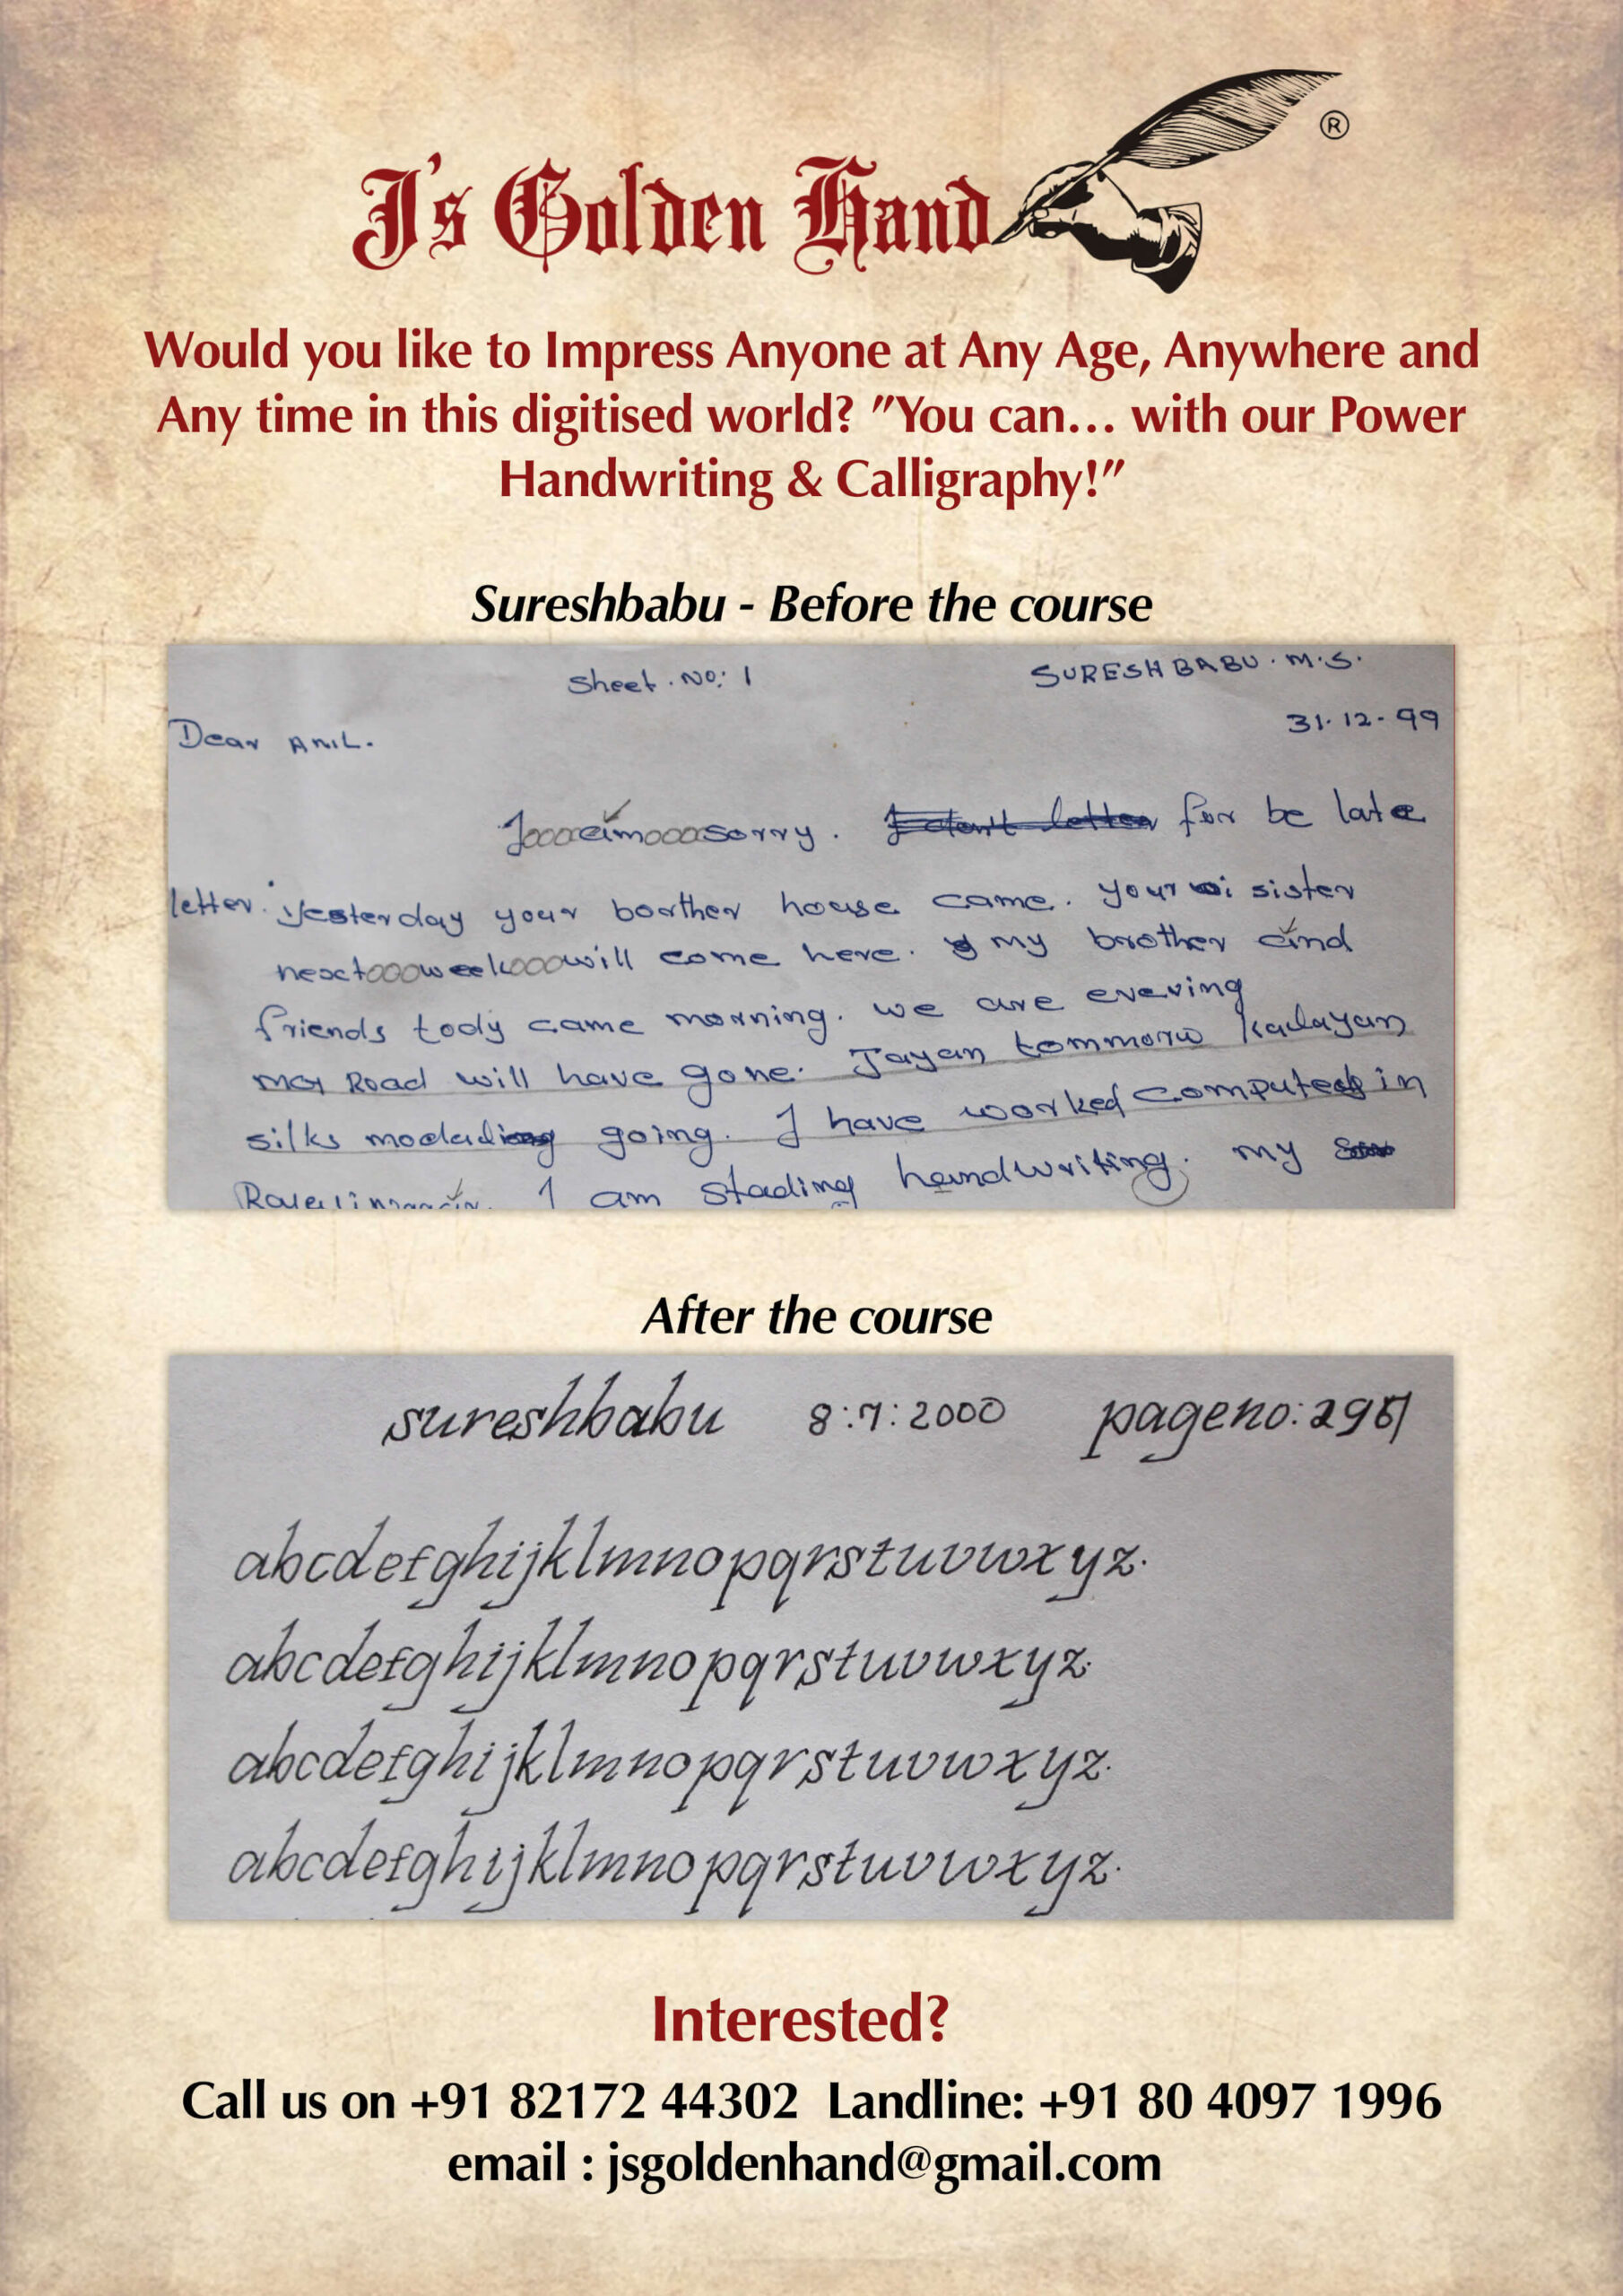 J's Golden Hand ®
Would you like to Impress Anyone at Any Age, Anywhere and
Any time in this digitised world? "You can... with our Power
Handwriting & Calligraphy!"
Sureshbabu - Before the course
Sheet. No: 1 SURESHBABU. M.S.
31-12-99
Dear ANIL.
I am sorry. for be late
letter. yesterday your borther house came. your sister
next week will come here. my brother and
friends tody came morning. we are evening
Road will have gone. Jayan tommorw kalayan
silks going. I have worked computer in
I am stading handwriting. my
After the course
sureshbabu 8:7:2000 pageno:
abcdefghijklmnopqrstuvwxyz.
abcdefghijklmnopqrstuvwxyz.
abcdefghijklmnopqrstuvwxyz.
abcdefghijklmnopqrstuvwxyz.
Interested?
Call us on +91 82172 44302 Landline: +91 80 4097 1996
email : jsgoldenhand@gmail.com